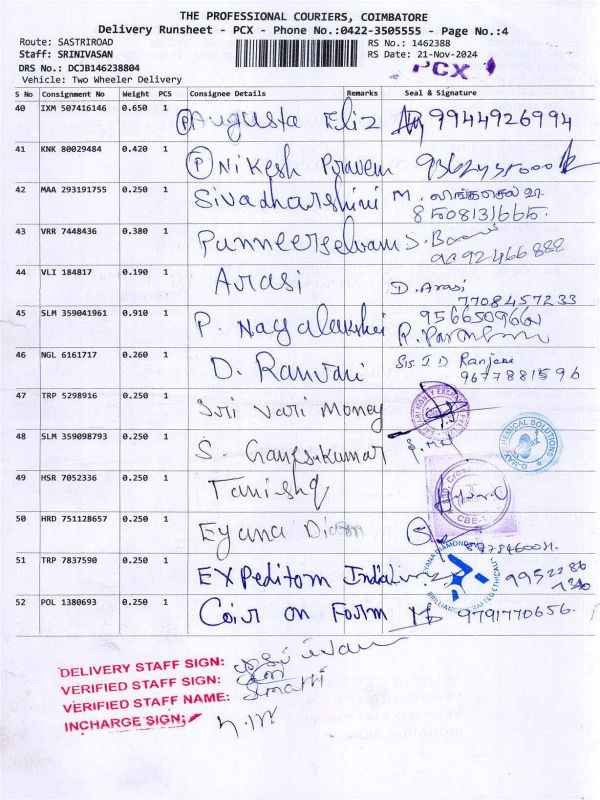 THE PROFESSIONAL COURIERS, COIMBATORE
Delivery Runsheet - PCX - Phone No.:0422-3505555 - Page No.:4
Route: SASTRIROAD RS No.: 1462388
Staff: SRINIVASAN RS Date: 21-Nov-2024
DRS No.: DCJB146238804 PCX
Vehicle: Two Wheeler Delivery
S No Consignment No Weight PCS Consignee Details Remarks Seal & Signature
40 IXM 507416146 0.650 1 (P) Augusta Eliz 9944926994
41 KNK 80029484 0.420 1 (P) Nikesh Praveen
42 MAA 293191755 0.250 1 Sivadharshini M.
8508131665.
43 VRR 7448436 0.380 1 Punneerselvam S.
9092466888
44 VLI 184817 0.190 1 Arasi D. Arasi
7708457233
45 SLM 359041961 0.910 1 P. Nagalakshmi
46 NGL 6161717 0.260 1 D. Ranvani Sis J. D Ranjani
9677881596
47 TRP 5298916 0.250 1 Sri Vari Money
48 SLM 359098793 0.250 1 S. Ganeshkumar
CHEMICAL SOLUTIONS
49 HSR 7052336 0.250 1 Tanishq
CBE-1
50 HRD 751128657 0.250 1 Eyana
51 TRP 7837590 0.250 1 EXPeditom India
52 POL 1380693 0.250 1 Coir on Form 9791770656.
DELIVERY STAFF SIGN:
VERIFIED STAFF SIGN:
VERIFIED STAFF NAME:
INCHARGE SIGN: